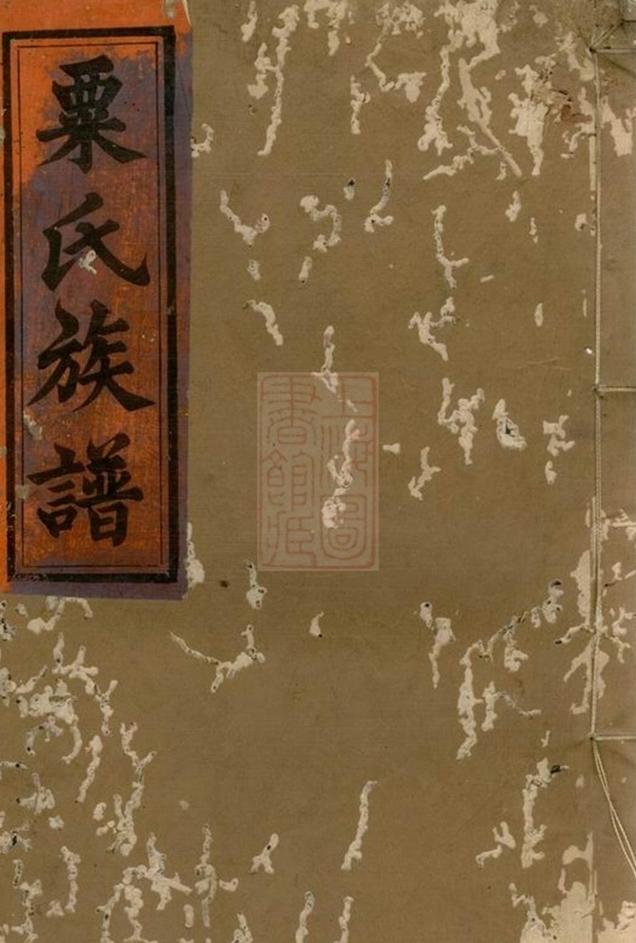 粟氏族譜
上海圖
書館藏